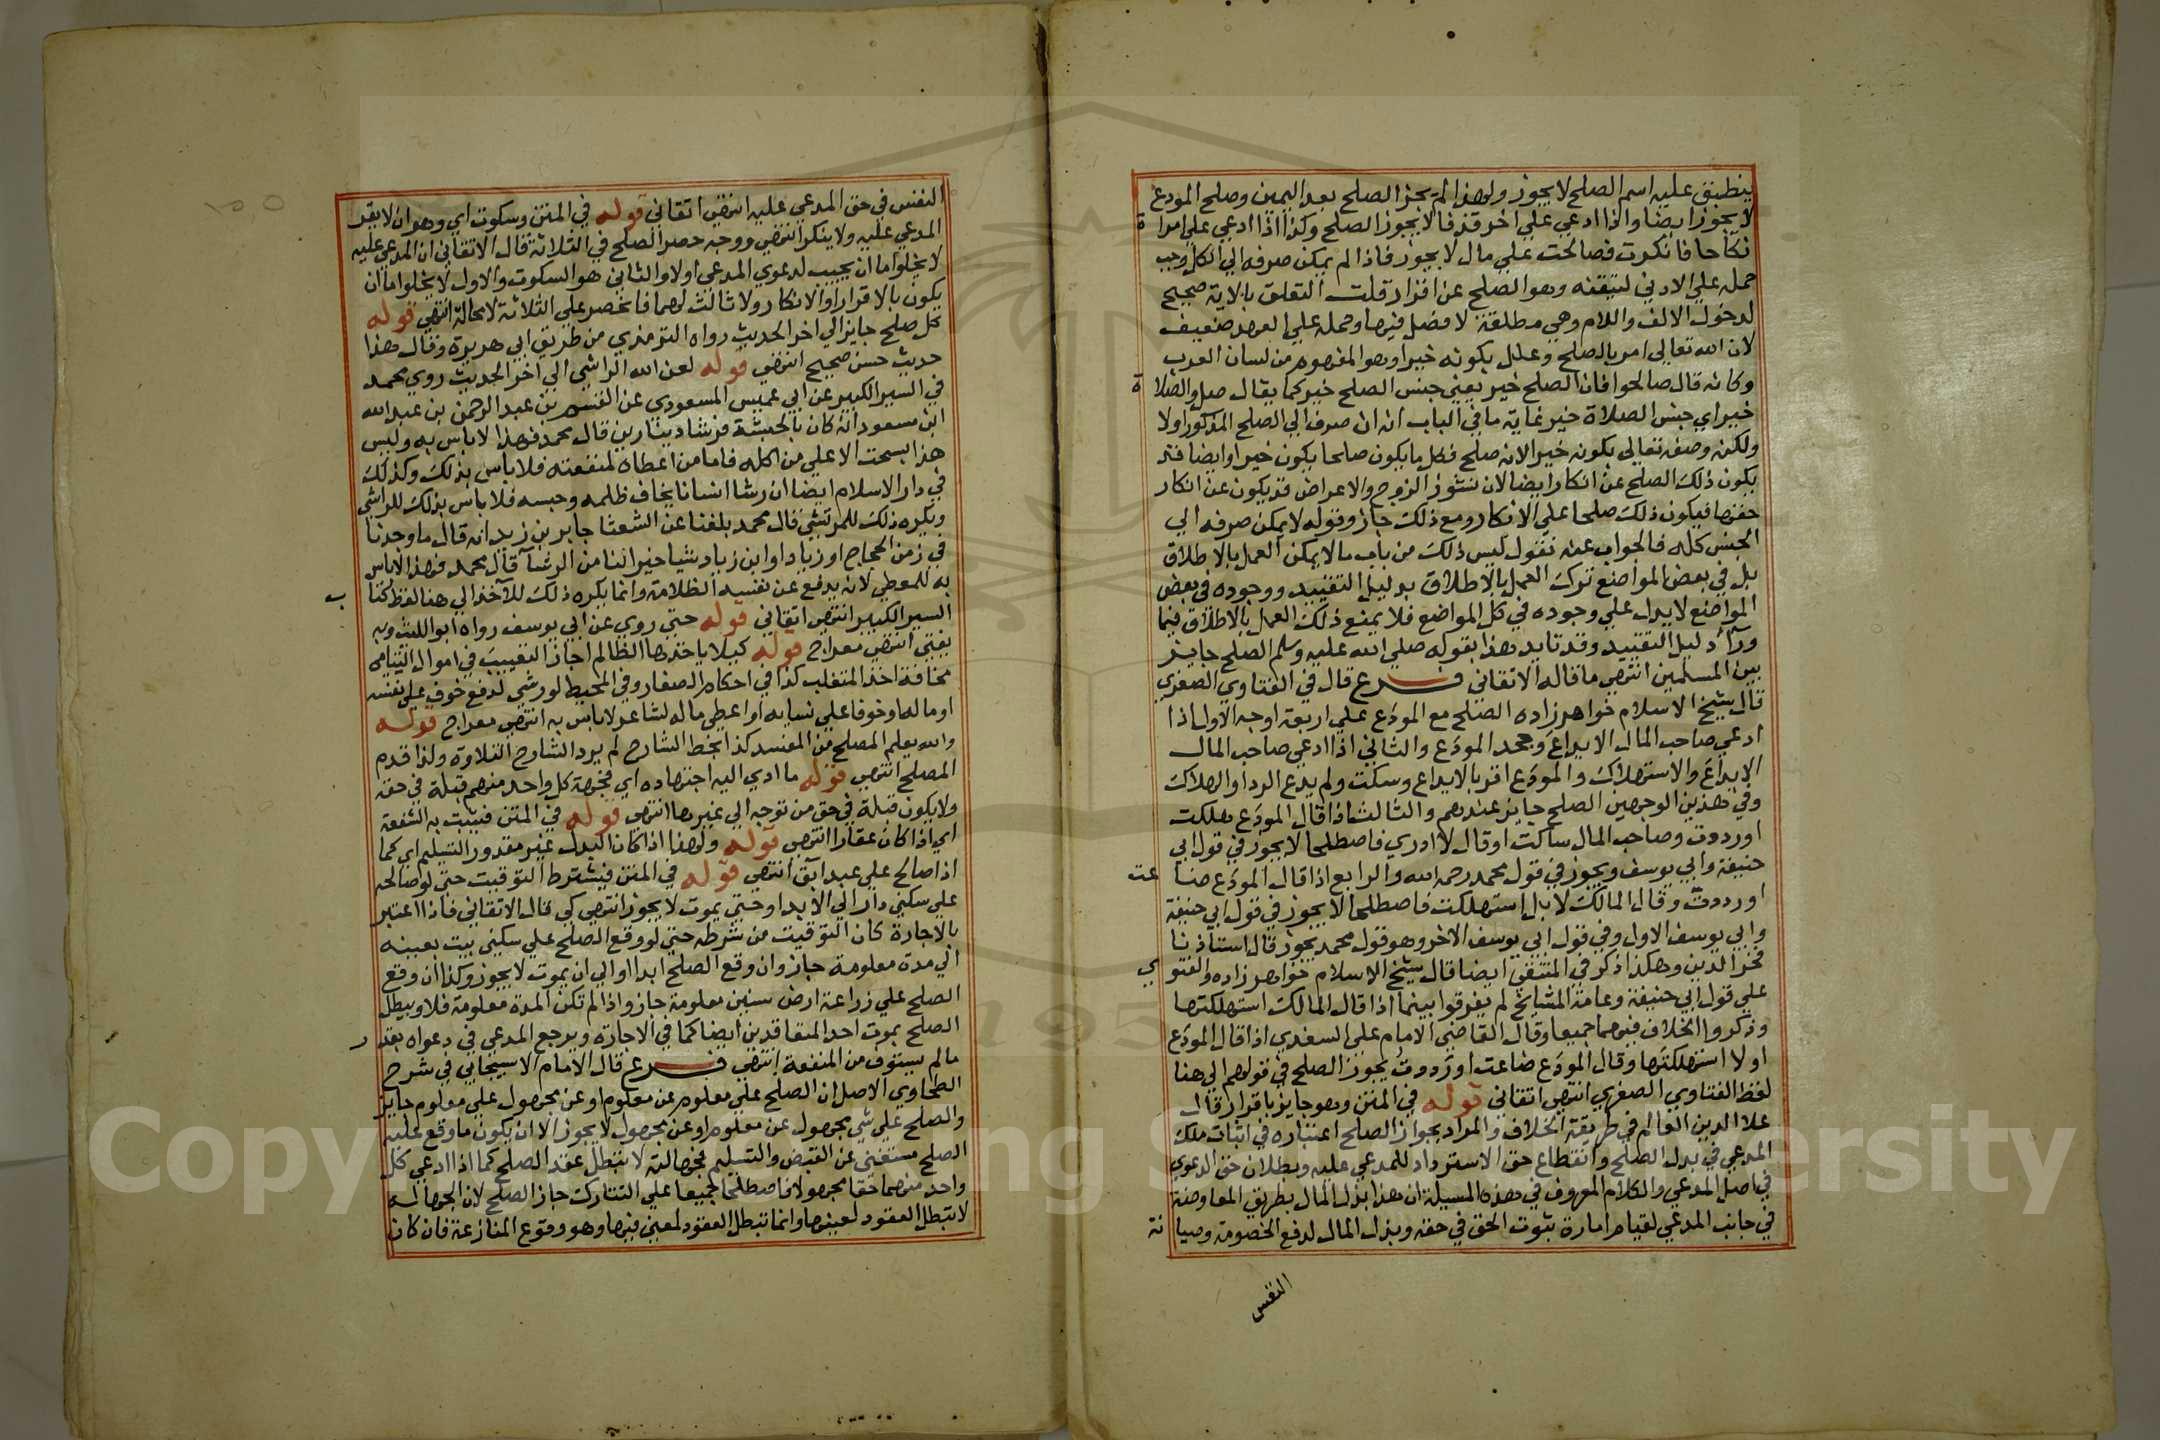 ينطبق عليه اسم الصلح لا يجوز ولهذا لم يجز الصلح بعد اليمين وصلح المودع
لا يجوز ايضا واذا ادعي علي اخر قذفا لا يجوز الصلح وكذا اذا ادعي علي امراة
نكاحا فانكرت فصالحت علي مال لا يجوز فاذا لم يمكن صرفه الي الكل وجب
حمله علي الادني لتيقنه وهو الصلح عن اقرار قلت التعلق بالاية صحيح
لدخول الالف واللام وهي مطلقة لا فصل فيها وحمله علي العهد ضعيف
لان الله تعالي امر بالصلح وعلل بكونه خيرا وهو المفهوم من لسان العرب
وكانه قال صالحوا فان الصلح خير يعني جنس الصلح خير كما يقال صل والصلاة
خير اي جنس الصلاة خير غاية ما في الباب انه ان صرف الي الصلح المذكور اولا
ولكنه وصفه تعالي بكونه خيرا لانه صلح فكل ما يكون صلحا يكون خيرا وايضا قد
يكون ذلك الصلح عن انكار ايضا لان نشوز الزوج والاعراض قد يكون عن انكار
حقها فيكون ذلك صلحا علي الانكار ومع ذلك جاز وقوله لا يمكن صرفه الي
الجنس كله فالجواب عنه نقول ليس ذلك من باب ما لا يمكن العمل بالاطلاق
بل في بعض المواضع ترك العمل بالاطلاق بدليل التقييد ووجوده في بعض
المواضع لا يدل علي وجوده في كل المواضع فلا يمنع ذلك العمل بالاطلاق فيما
ورآء دليل التقييد وقد تايد هذا بقوله صلي الله عليه وسلم الصلح جايز
بين المسلمين انتهي ما قاله الاتقاني فرع قال في الفتاوي الصغري
قال شيخ الاسلام خواهر زاده الصلح مع المودَع علي اربعة اوجه الاول اذا
ادعي صاحب المال الايداعَ وجحد المودع والثاني اذا ادعي صاحب المال
الايداعَ والاستهلاك والمودَع اقر بالايداع وسكت ولم يدع الرد او الهلاك
وفي هذين الوجهين الصلح جايز عندهم والثالث اذا قال المودَع هلكت
او رددت وصاحب المال ساكت او قال لا ادري فاصطلحا لا يجوز في قول ابي
حنيفة وابي يوسف ويجوز في قول محمد رحمه الله والرابع اذا قال المودَع ضاعت
او رددت وقال المالك لا بل استهلكت فاصطلحا لا يجوز في قول ابي حنيفة
وابي يوسف الاول وفي قول ابي يوسف الاخر وهو قول محمد يجوز قال استاذنا
فخر الدين وهكذا ذكر في المنتقي ايضا قال شيخ الاسلام خواهر زاده والفتوي
علي قول ابي حنيفة وعامة المشايخ لم يفرقوا بينما اذا قال المالك استهلكتها
وذكروا الخلاف فيهما جميعا وقال القاضي الامام علي السغدي اذا قال المودَع
اولا استهلكتها وقال المودَع ضاعت او رددتُ يجوز الصلح في قولهم الي هنا
لفظ الفتاوي الصغري انتهي اتقاني قوله في المتن وهو جايز باقرار قال
علا الدين العالم في طريقة الخلاف والمراد بجواز الصلح اعتباره في اثبات ملك
المدعي في بدل الصلح وانقطاع حق الاسترداد للمدعي عليه وبطلان حق الدعوي
في اصل المدعي والكلام المعروف في هذه المسيلة ان هذا بذل المال بطريق المعاوضة
في جانب المدعي لقيام امارة ثبوت الحق في حقه وبذل المال لدفع الخصومة وصيانة
النفس
النفس في حق المدعي عليه انتهي اتقاني قوله في المتن وسكوت اي وهو ان لا يقر
المدعي عليه ولا ينكر انتهي ووجه حصر الصلح في الثلاثة قال الاتقاني ان المدعي عليه
لا يخلو اما ان يجيب لدعوي المدعي اولا والثاني هو السكوت والاول لا يخلو اما ان
يكون بالاقرار او الانكار ولا ثالث لهما فانحصر علي الثلاثة لا محالة انتهي قوله
كل صلح جايز الي اخر الحديث رواه الترمذي من طريق ابي هريرة وقال هذا
حديث حسن صحيح انتهي قوله لعن الله الراشي الي اخر الحديث روي محمد
في السير الكبير عن ابي عميس المسعودي عن القسم بن عبد الرحمن بن عبد الله
ابن مسعود انه كان بالحبشة فرشا دينارين قال محمد فهذا لا باس به وليس
هذا بسحت الا علي من اكله فاما من اعطاه لمنفعته فلا باس بذلك وكذلك
في دار الاسلام ايضا ان رشا انسانا يخاف ظلمه وحبسه فلا باس بذلك للراشي
ويكره ذلك للمرتشي قال محمد بلغنا عن الشعثا جابر بن زيد انه قال ما وجدنا
في زمن الحجاج او زياد او ابن زياد شيا خيرا لنا من الرشا قال محمد فهذا لا باس
به للمعطي لانه يدفع عن نفسه الظلامة وانما يكره ذلك للآخذ الي هنا لفظ كتاب
السير الكبير انتهي اتقاني قوله حتي روي عن ابي يوسف رواه ابو الليث وبه
يفتي انتهي معراج قوله كيلا ياخذها الظالم اجاز التعييب في اموال اليتامي
مخافة اخذ المتغلب كذا في احكام الصغار وفي المحيط لو رشي لدفع خوف علي نفسه
او ماله او خوفا علي نسايه او اعطي ماله لشاعر لا باس به انتهي معراج قوله
والله يعلم المصلح من المفسد كذا بخط الشارح لم يرد الشارح التلاوة ولذا قدم
المصلح انتهي قوله ما ادي اليه اجتهاده اي فجهة كل واحد منهم قبلة في حقه
ولا يكون قبلة في حق من توجه الي غيرها انتهي قوله في المتن فيثبت به الشفعة
اي اذا كان عقارا انتهي قوله ولهذا اذا كان البدل غير مقدور التسليم اي كما
اذا صالح علي عبد آبق انتهي قوله في المتن فيشترط التوقيت حتي لو صالحه
علي سكني دار الي الابد او حتي يموت لا يجوز انتهي كي قال الاتقاني فاذا اعتبر
بالاجارة كان التوقيت من شرطه حتي لو وقع الصلح علي سكني بيت بعينه
الي مدة معلومة جاز وان وقع الصلح ابدا او الي ان يموت لا يجوز وكذا ان وقع
الصلح علي زراعة ارض سنين معلومة جاز واذا لم تكن المدة معلومة فلا ويبطل
الصلح بموت احد المتعاقدين ايضا كما في الاجارة ويرجع المدعي في دعواه بقدر
ما لم يستوف من المنفعة انتهي فرع قال الامام الاسبيجابي في شرح
الطحاوي الاصل ان الصلح علي معلوم عن معلوم او عن مجهول علي معلوم جايز
والصلح علي شي مجهول عن معلوم او عن مجهول لا يجوز الا ان يكون ما وقع عليه
الصلح مستغني عن القبض والتسليم فجهالته لا تبطل عقد الصلح كما اذا ادعي كل
واحد منهما حقا مجهولا فاصطلحا جميعا علي التتارك جاز الصلح لان الجهالة
لا تبطل العقود لعينها وانما تبطل العقود لمعني فيها وهو وقوع المنازعة فان كان
Copy ng S ersity